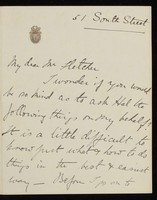 51 South Street
My dear Mr Fletcher
I wonder if you would
be so kind as to ask Hal the
following things on my behalf?
It is a little difficult to
know just what & how to do
things in the best & easiest
way — Before I go on to